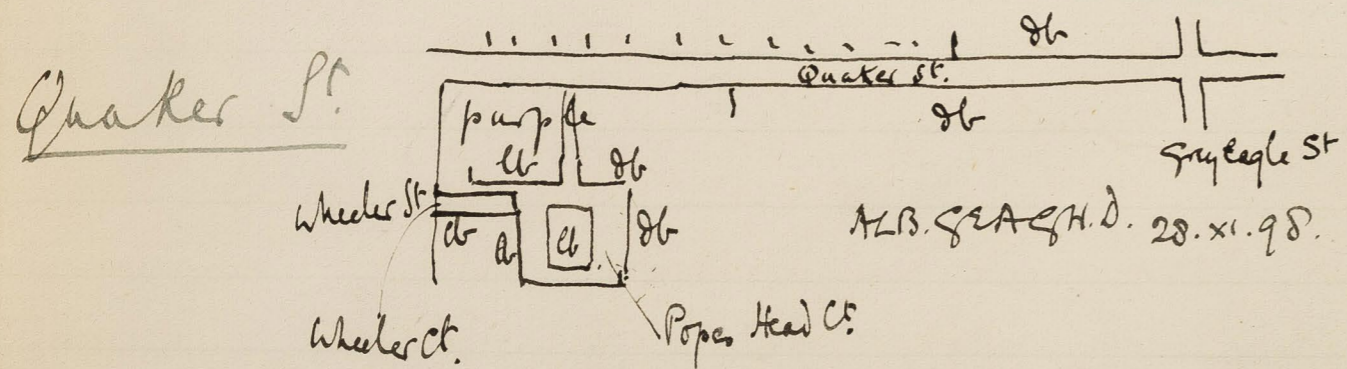 Quaker St.
db
Quaker St.
purple
db
lb
db
Grey Eagle St
Wheeler St
lb
lb
lb
db
ALB. GEAGH. D. 28.XI.98.
Wheeler Ct.
Popes Head Ct.